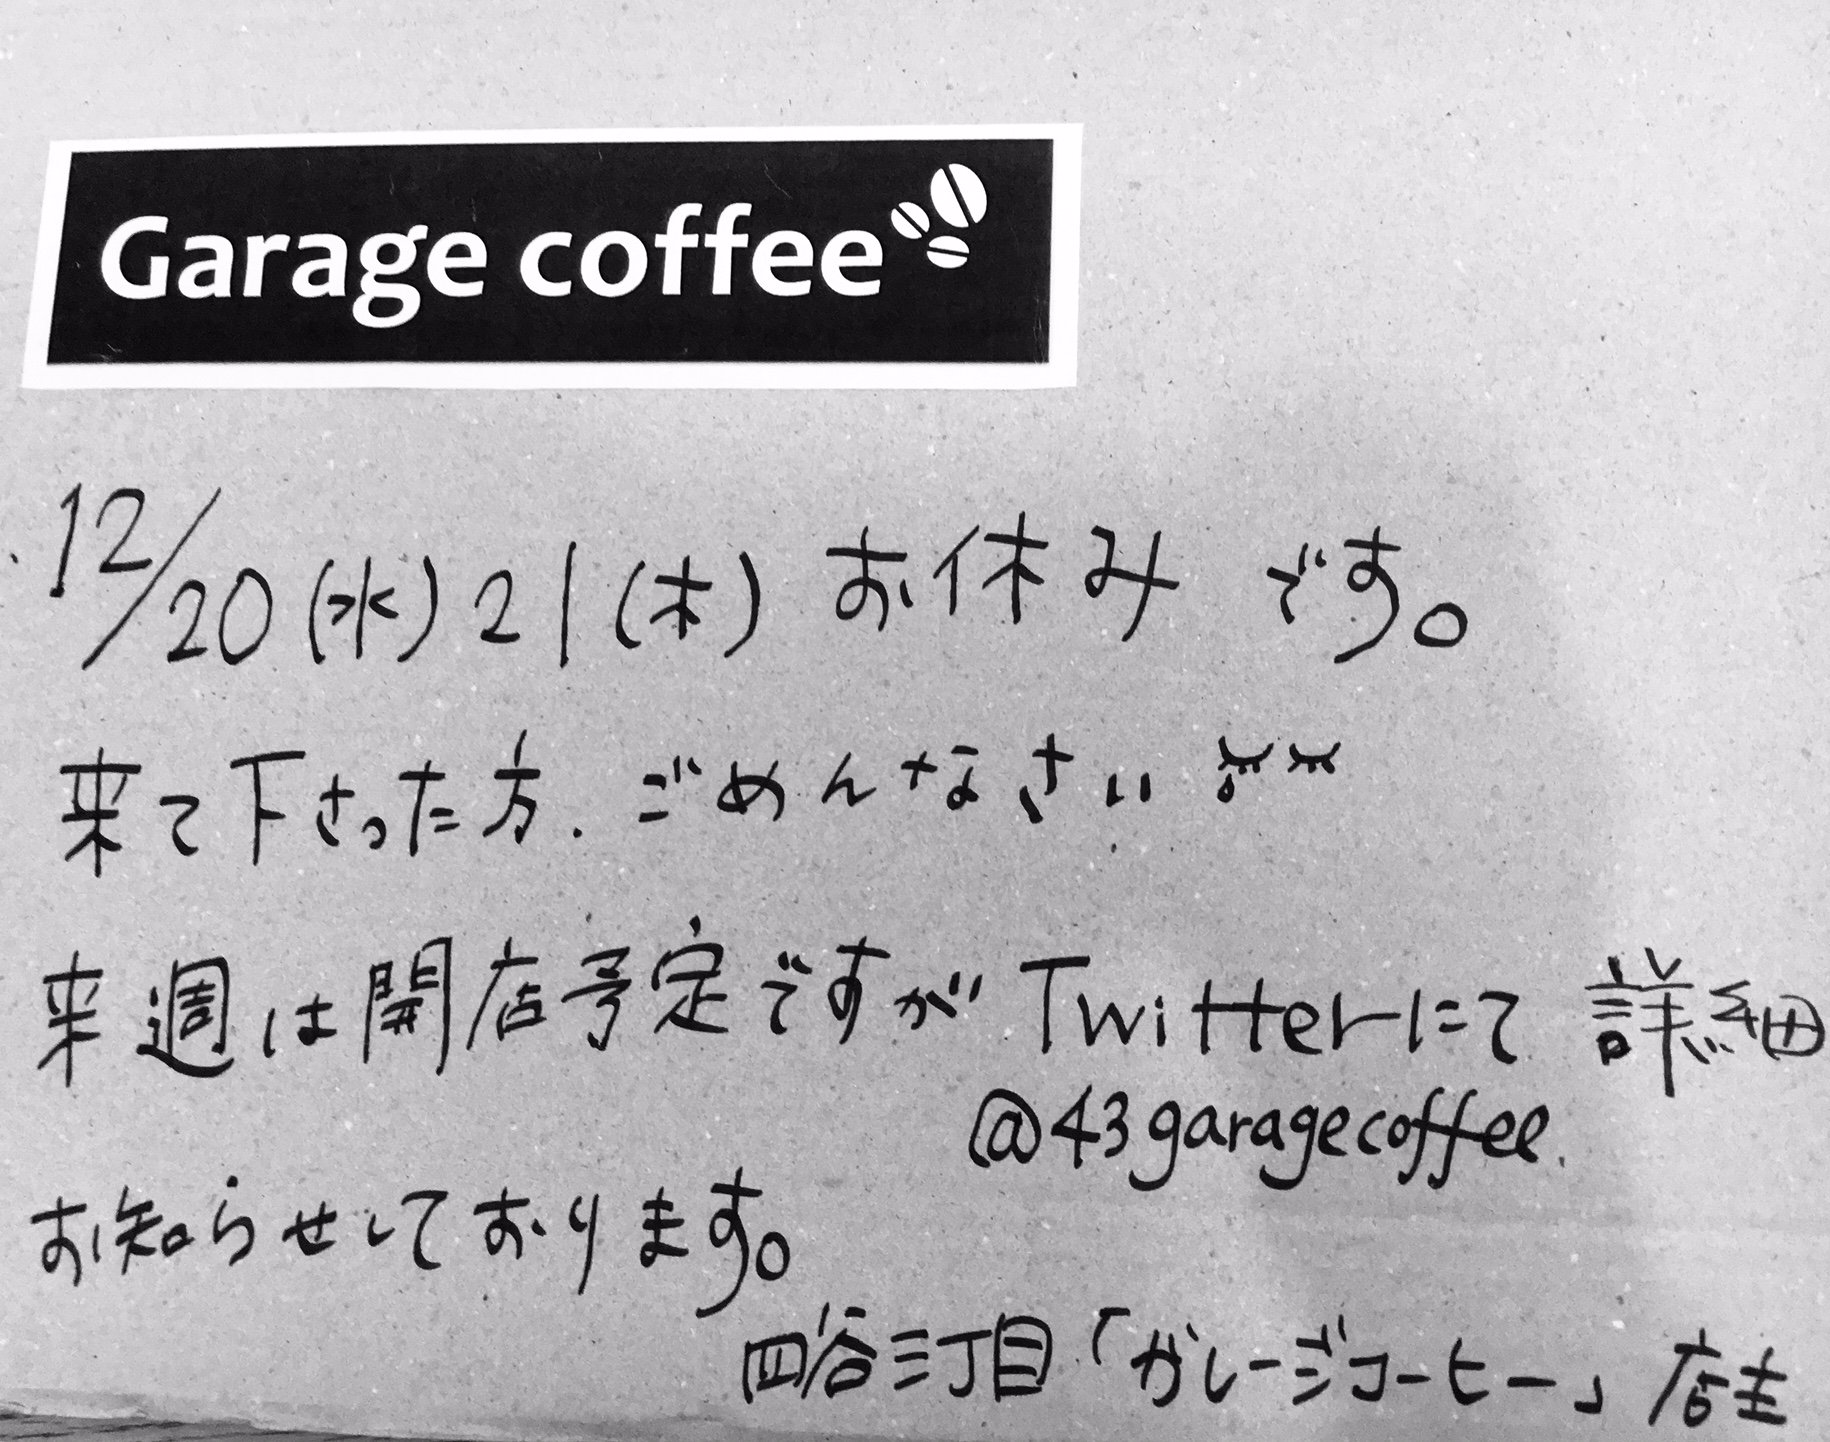 Garage coffee
12/20(水)21(木) お休みです。
来て下さった方.ごめんなさい
来週は開店予定ですがTwitterにて詳細
@43garagecoffee.
お知らせしております。
四谷三丁目「ガレージコーヒー」店主